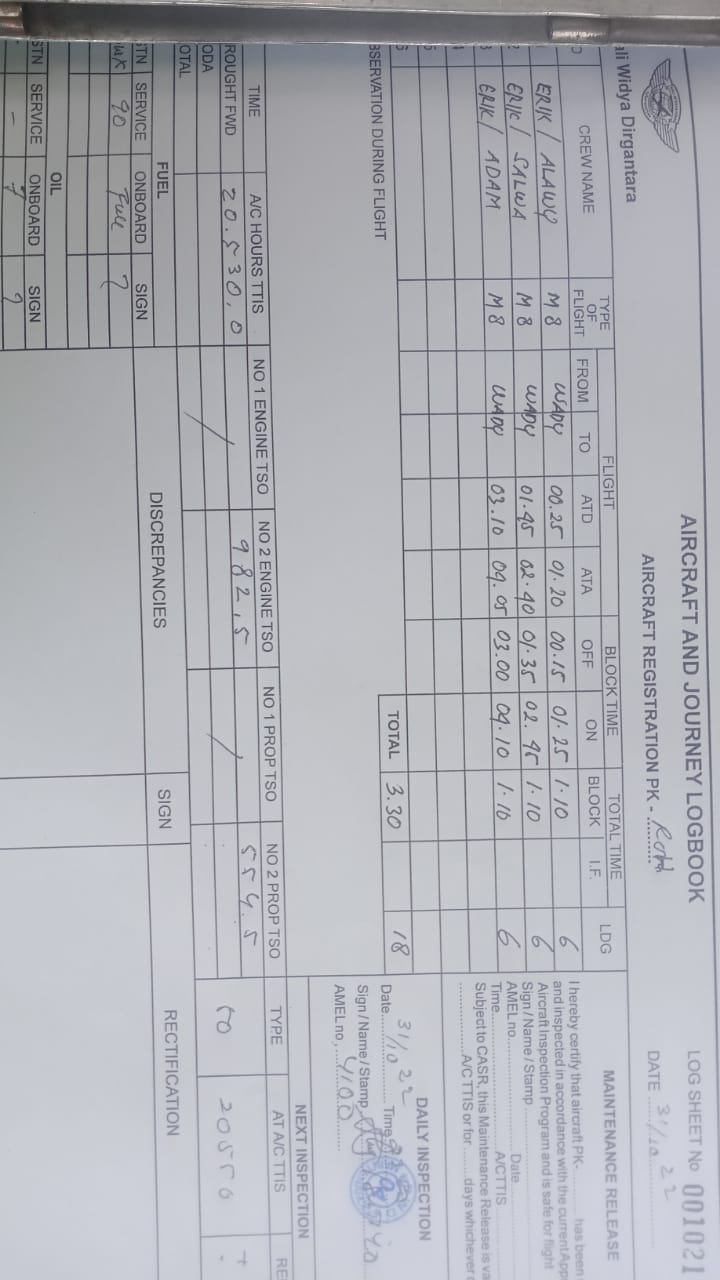 AIRCRAFT AND JOURNEY LOGBOOK
LOG SHEET No 001021
AIRCRAFT REGISTRATION PK -
DATE 31/10 22
ali Widya Dirgantara
CREW NAME TYPE OF FLIGHT FLIGHT BLOCK TIME TOTAL TIME LDG
FROM TO ATD ATA OFF ON BLOCK I.F.
ERIK / ALAWY M8 WADY 00.25 01.20 00.15 01.25 1.10 6
2 ERIK / SALWA M8 WADY 01.45 02.40 01.35 02.45 1.10 6
3 ERIK / ADAM M8 WADY 03.10 04.05 03.00 04.10 1.10 6
4
5
6
TOTAL 3.30 18
BSERVATION DURING FLIGHT
MAINTENANCE RELEASE
I hereby certify that aircraft PK-.......... has been
and inspected in accordance with the current App
Aircraft Inspection Program and is safe for flight
Sign / Name / Stamp
AMEL no. Date
Time A/CTTIS
Subject to CASR, this Maintenance Release is va
A/C TTIS or for ........days whichever
DAILY INSPECTION
Date 31/10 22 Time
Sign / Name / Stamp
AMEL no, 4100
NEXT INSPECTION
TYPE AT A/C TTIS RE
50 20550
TIME A/C HOURS TTIS NO 1 ENGINE TSO NO 2 ENGINE TSO NO 1 PROP TSO NO 2 PROP TSO
ROUGHT FWD 20.530,0 / 982,5 / 554.5
ODA
OTAL
FUEL
STN SERVICE ONBOARD SIGN
90 Full
OIL
STN SERVICE ONBOARD SIGN
- 7
DISCREPANCIES SIGN RECTIFICATION